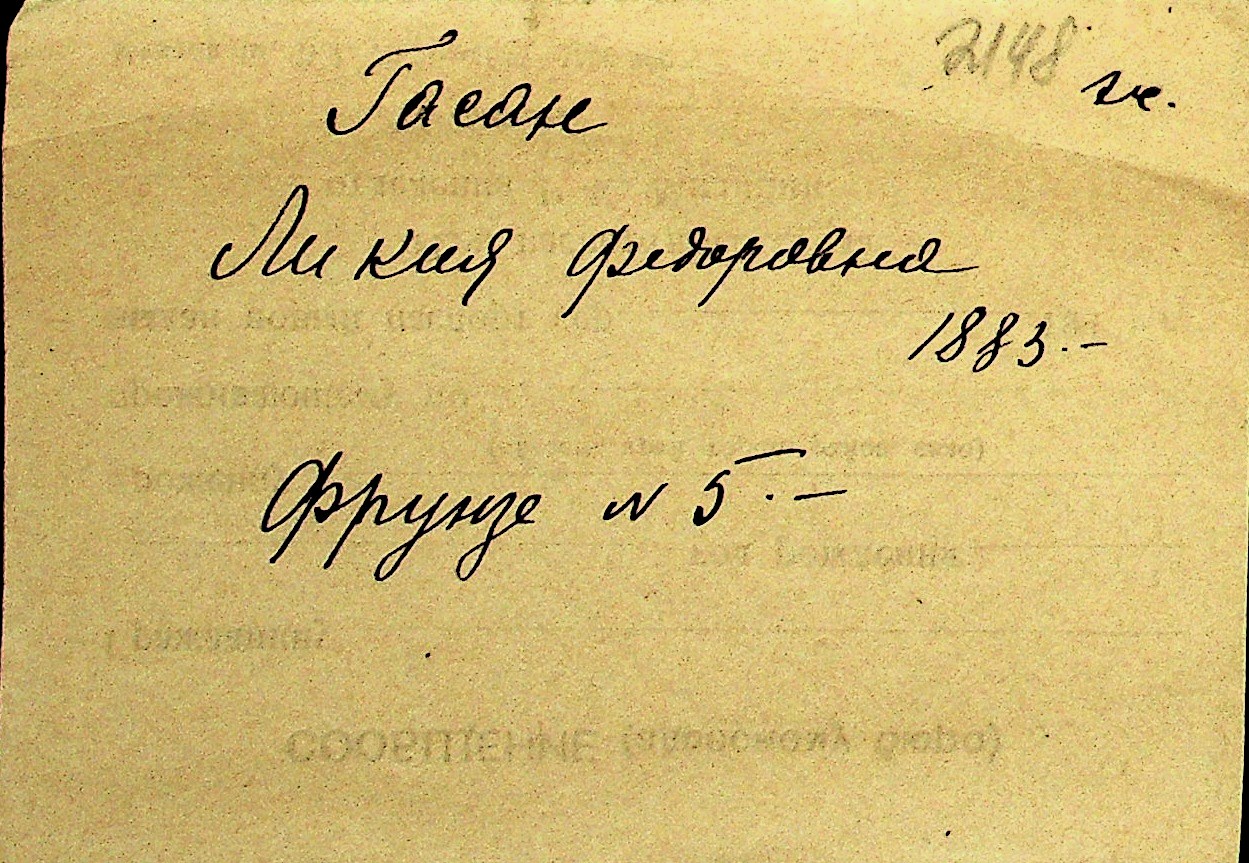 2148 эк.
Гасан
Ликия Федоровна
1883.-
Фрунзе N 5.-